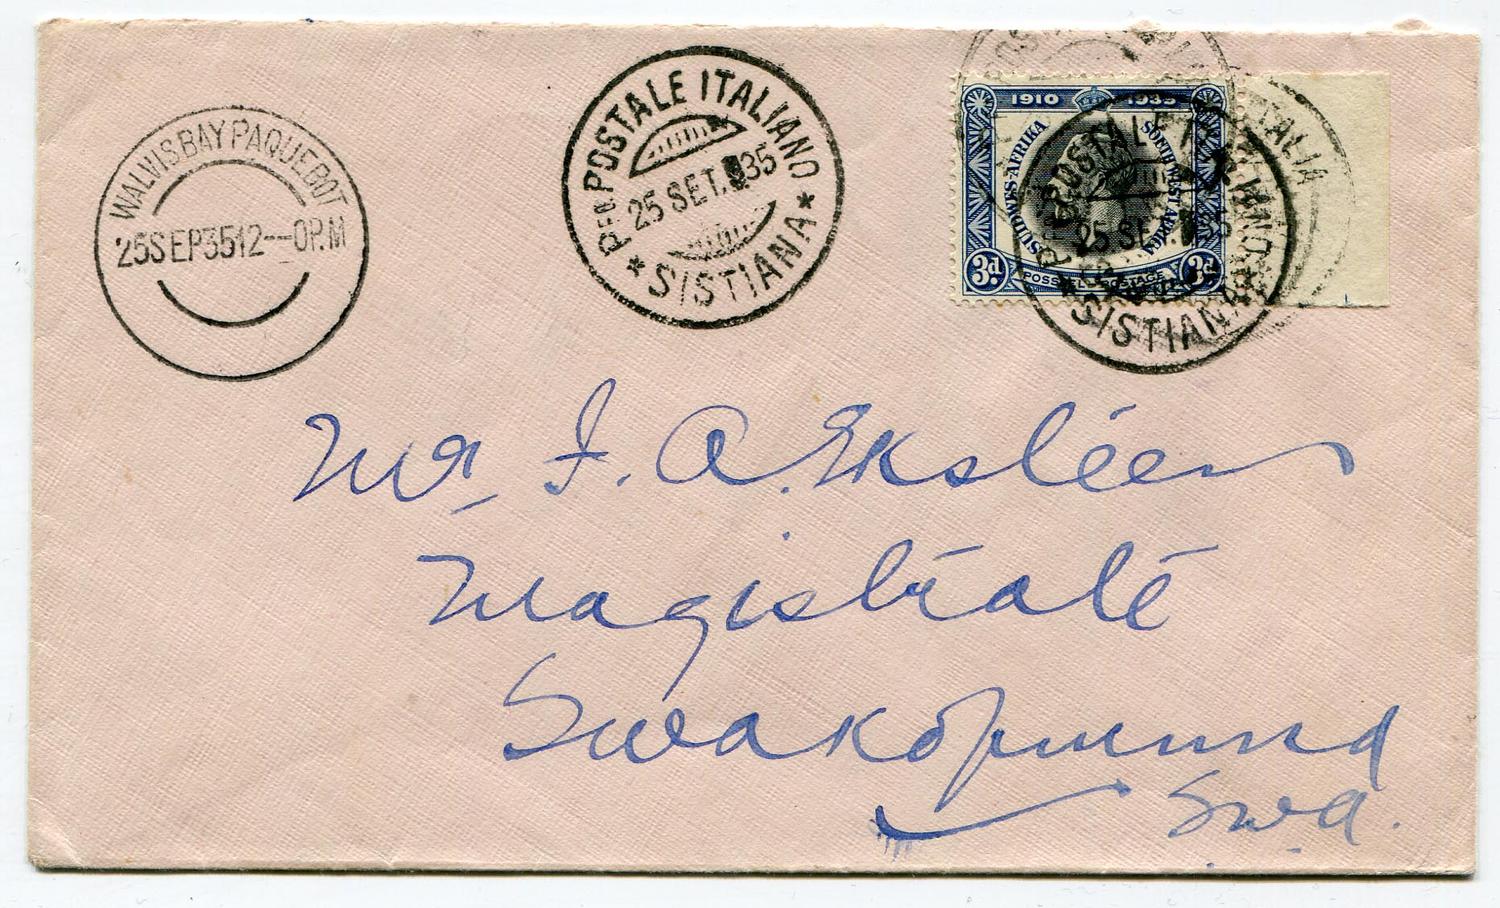 WALVIS BAY PAQUEBOT
25SEP3512--0P.M
PFO. POSTALE ITALIANO
25 SET. 935
* SISTIANA *
1910 1935
SUIDWES-AFRIKA
SOUTH WEST AFRICA
3d. POSSEËL POSTAGE 3d.
POSTALE ITALIANO
25 SET. 35
SISTIANA
ITALIA
Mr. I. A. Eksteen
Magistrate
Swakopmund
S.W.A.